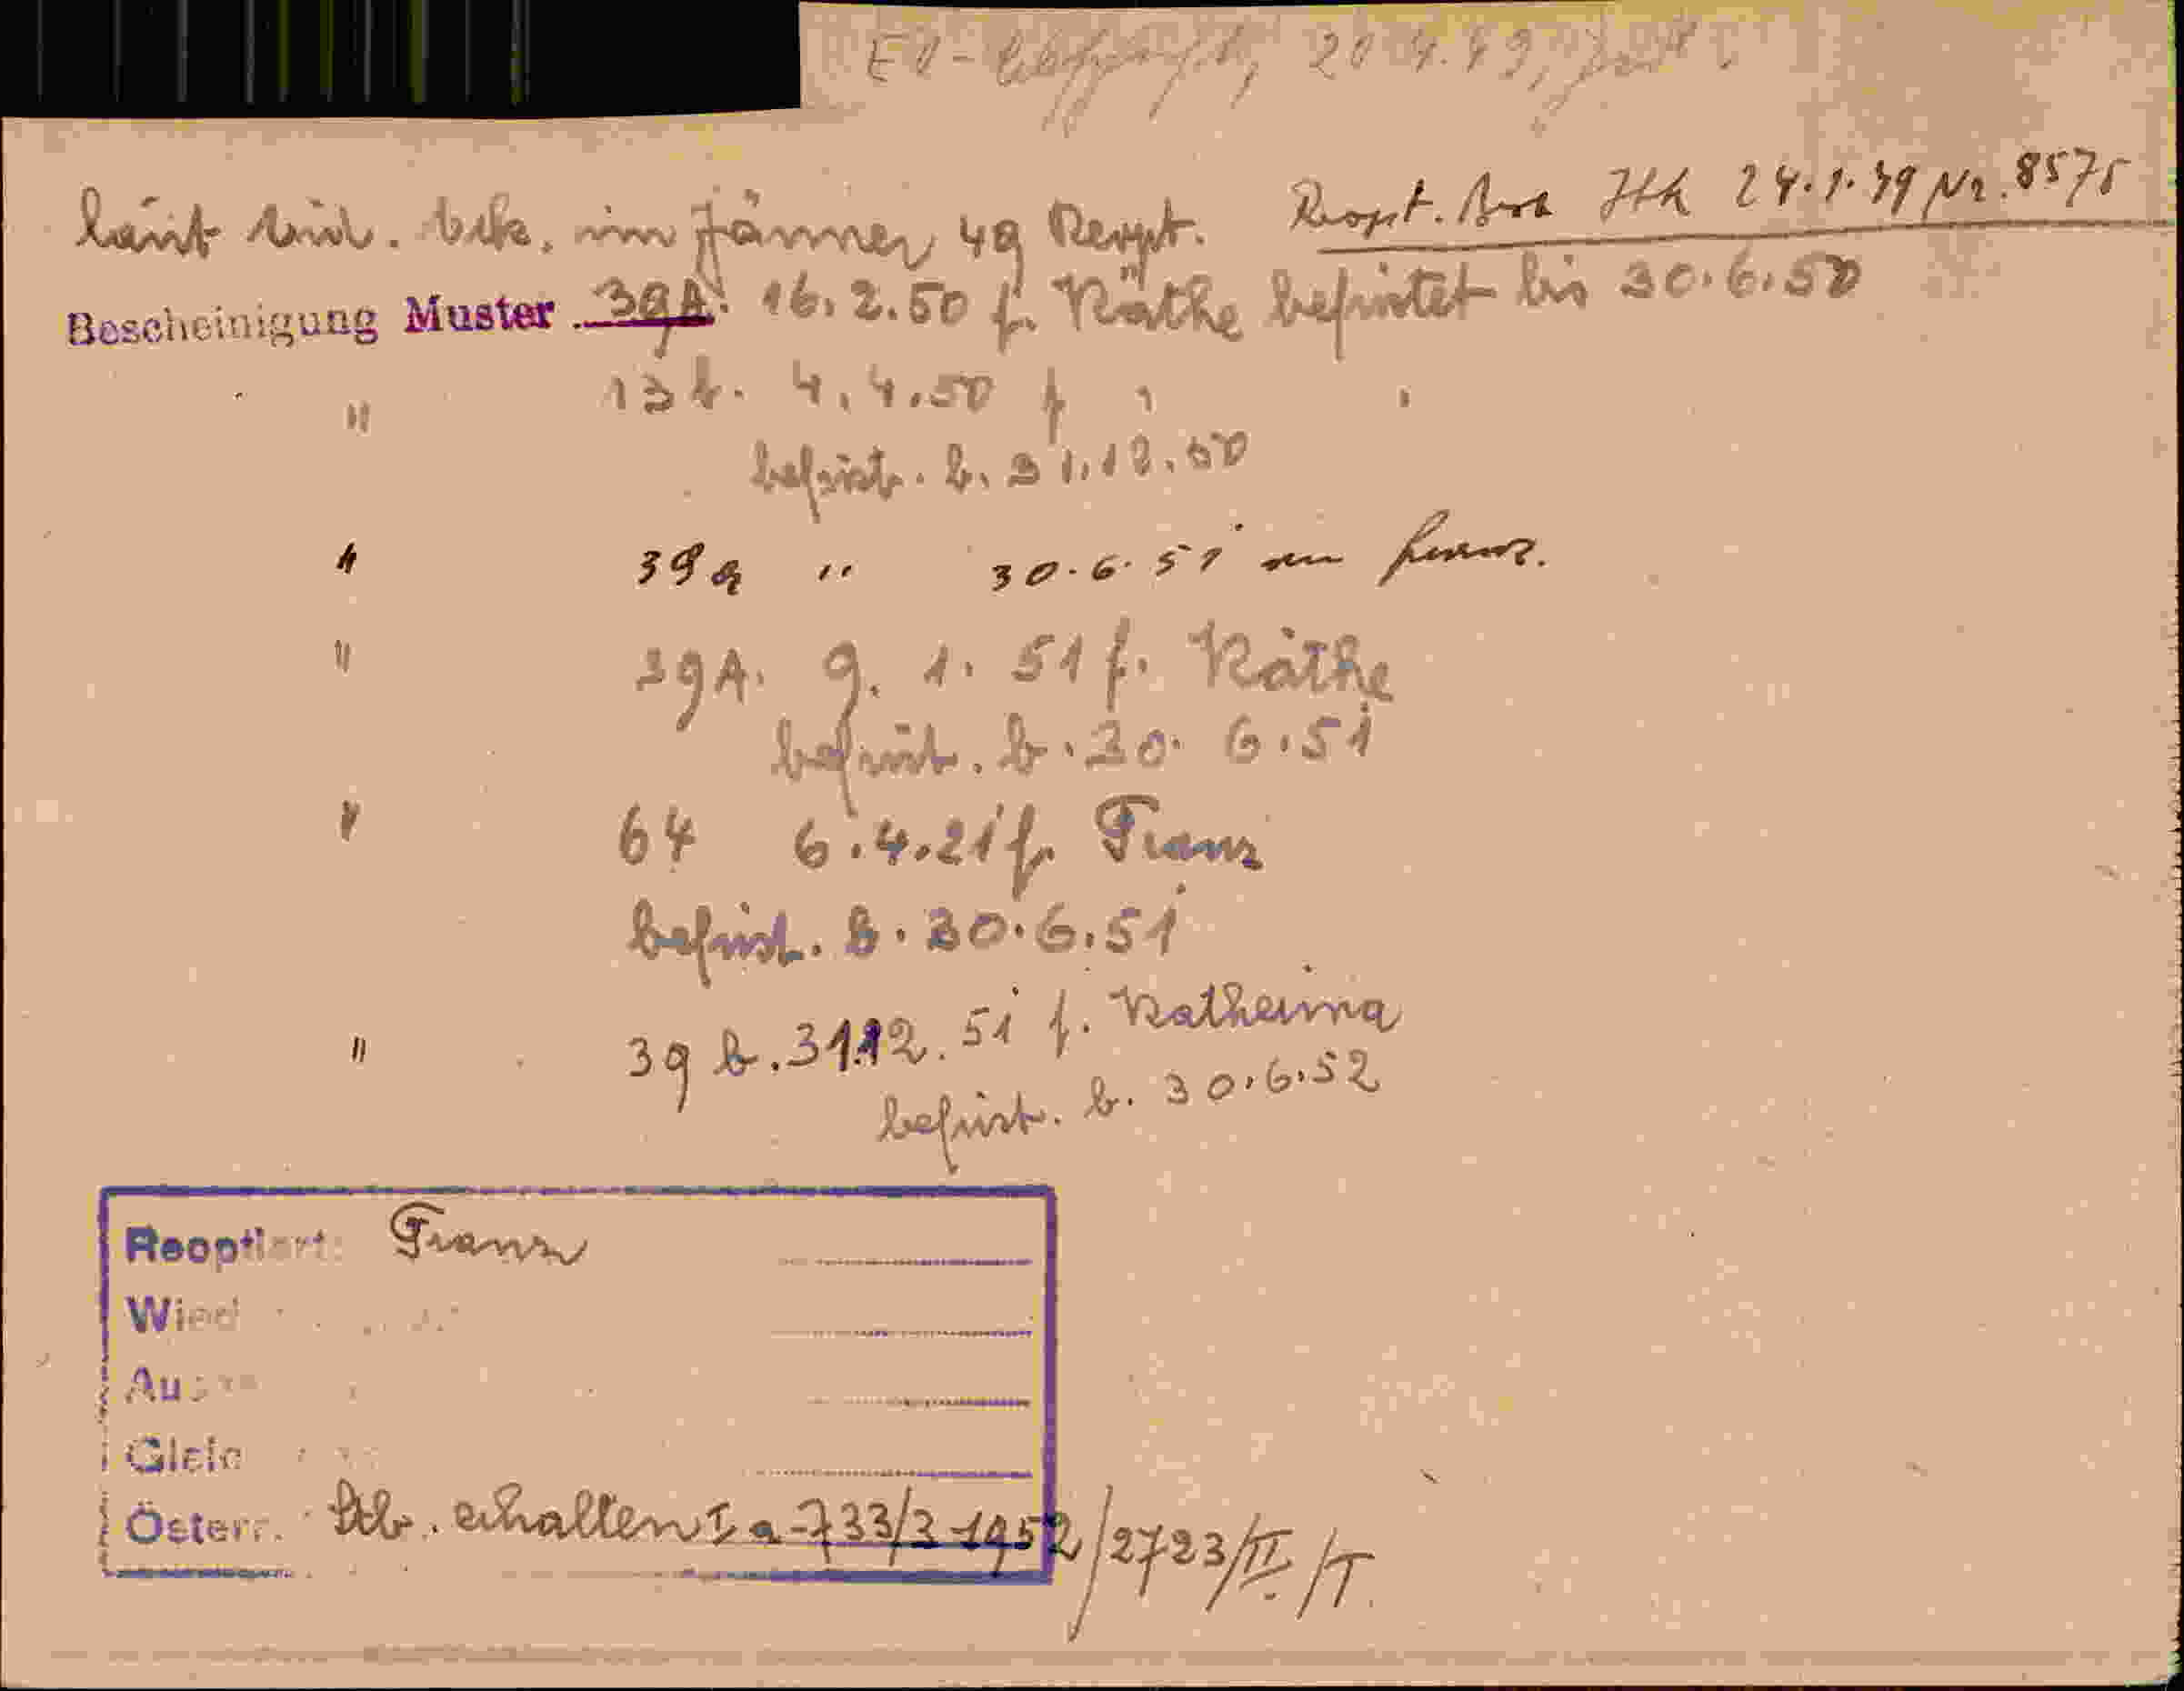 20.4.49,
laut eid. Erk. im Jänner 49 Reopt. Reopt. Bes 24.1.49 Nr. 8575
Bescheinigung Muster 39A. 16.2.50 f. Käthe befristet bis 30.6.50
" 13 b. 4.4.50 f " "
befrist. b. 31.12.50
" 39a " 30.6.51 Franz.
" 39A. 9.1.51 f. Käthe
befrist. b. 30.6.51
" 64 6.4.21 f. Franz
befrist. b. 30.6.51
" 39 b. 31.12.51 f. Katharina
befrist. b. 30.6.52
Reoptiert: Franz
Österr. Stb. erhalten I a-733/3-1952/2723/II/T.